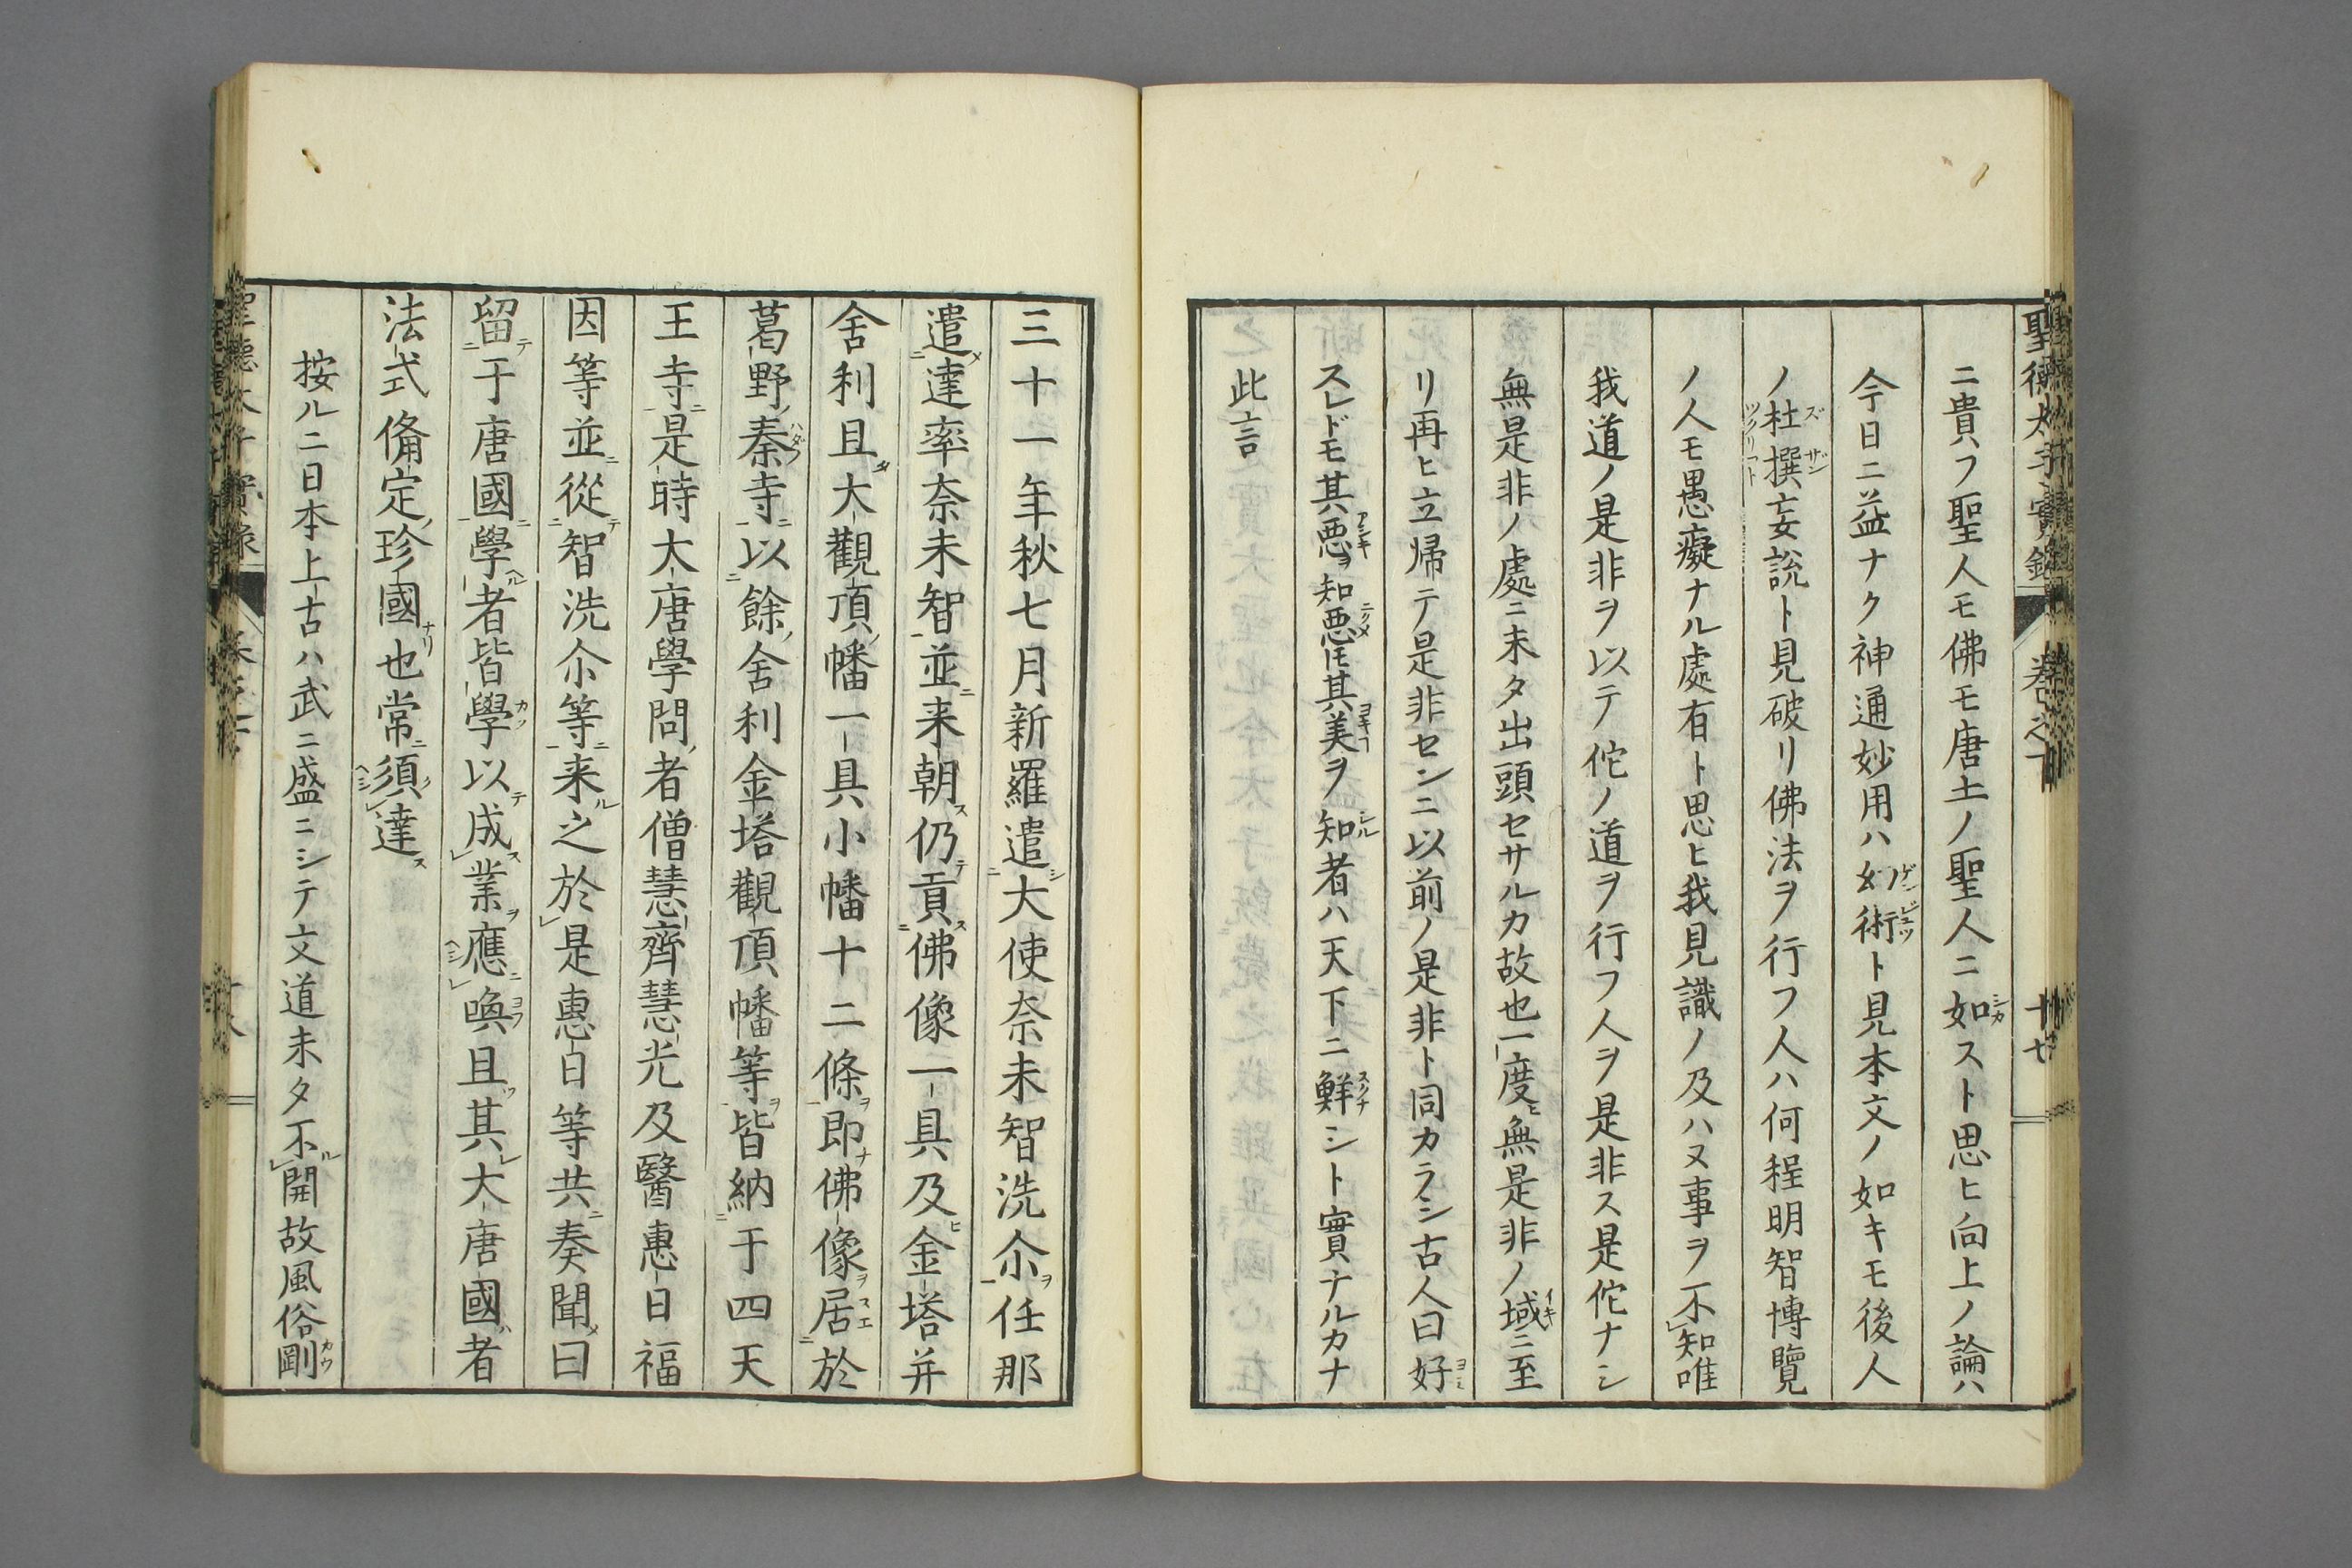 聖德太子實錄 卷之下 十七
ニ貴フ聖人モ佛モ唐土ノ聖人ニ如スト思ヒ向上ノ論ハ
今日ニ益ナク神通妙用ハ幻術ト見本文ノ如キモ後人
ノ杜撰妄說ト見破リ佛法ヲ行フ人ハ何程明智博覽
ノ人モ愚癡ナル處有ト思ヒ我見識ノ及ハヌ事ヲ不知唯
我道ノ是非ヲ以テ佗ノ道ヲ行フ人ヲ是非ス是佗ナシ
無是非ノ處ニ未タ出頭セサルカ故也一度ヒ無是非ノ域ニ至
リ再ヒ立帰テ是非センニ以前ノ是非ト同カラシ古人曰好
スレドモ其悪ヲ知悪𪜈其美ヲ知者ハ天下ニ鮮シト實ナルカナ
此言
三十一年秋七月新羅遣大使奈未智洗尒任那
遣達率奈未智並来朝仍貢佛像一具及金塔并
舍利且大觀頂幡一具小幡十二條即佛像居於
葛野秦寺以餘舍利金塔觀頂幡等皆納于四天
王寺是時大唐學問者僧慧齊慧光及醫惠日福
因等並從智洗尒等来之於是惠日等共奏聞曰
留于唐國學者皆學以成業應喚且其大唐國者
法式備定珍國也常須達
按ルニ日本上古ハ武ニ盛ニシテ文道未タ不開故風俗剛